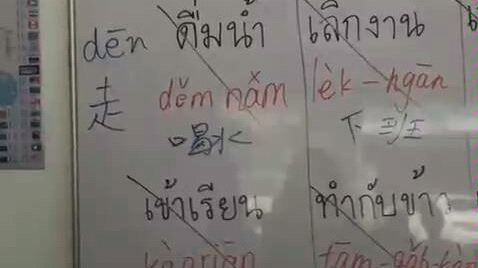 dēn ดื่มน้ำ เลิกงาน
走 děm nǎm lèk-ngān
喝水 下班
เข้าเรียน ทำกับข้าว